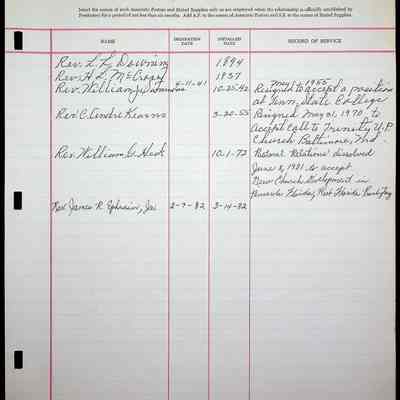 Insert the names of such Associate Pastors and Stated Supplies only as are employed when the relationship is officially established by
Presbytery for a period of not less than six months. Add A.P. to the names of Associate Pastors and S.S. to the names of Stated Supplies.
NAME
ORDINATION DATE
INSTALLED DATE
RECORD OF SERVICE
Rev. L. L. Downing 1894
Rev. H. L. McCrorey 1937 May 1, 1955
Rev. William 4-11-41 10-25-42 Resigned to accept a position
at Tenn. State College
Rev. C. Andre Kearns 3-20-55 Resigned May 31, 1970 to
Accept Call to Trinity U.P.
Church Baltimore, Md.
Rev. William G. 10-1-72 Pastoral Relations dissolved
June 8, 1981 to accept
New Church Development in
Florida, West Florida
Rev. James R. Ephraim, Jr. 2-7-82 3-14-82